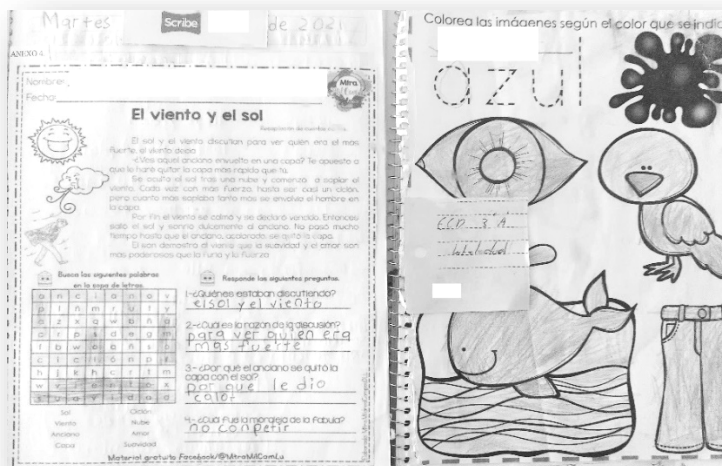 Martes
Scribe
de 2021
ANEXO 4.
Nombre:
Fecha:
Mtra
El viento y el sol
El sol y el viento discutían para ver quién era el más
fuerte, el viento decía:
-¿Ves aquel anciano envuelto en una capa? Te apuesto a
que le haré quitar la capa más rápido que tú.
Se ocultó el sol tras una nube y comenzó a soplar el
viento. Cada vez con más fuerza, hasta ser casi un ciclón,
pero cuanto más soplaba tanto más se envolvía el hombre en
la capa.
Por fin el viento se calmó y se declaró vencido. Entonces
salió el sol y sonrió dulcemente al anciano. No pasó mucho
tiempo hasta que el anciano, acalorado, se quitó la capa.
El sol demostró al viento que la suavidad y el amor son
más poderosos que la furia y la fuerza
Busca las siguientes palabras
en la sopa de letras.
Sol Ciclón
Viento Nube
Anciano Amor
Capa Suavidad
Responde las siguientes preguntas.
1-¿Quiénes estaban discutiendo?
el sol y el viento
2-¿Cuál es la razón de la discusión?
para ver quien era
mas fuerte
3-¿Por qué el anciano se quitó la
capa con el sol?
por que le dio
calor
4-¿Cuál fue la moraleja de la fábula?
no conpetir
Material gratuito Facebook/@MtraMilCamLu
Colorea las imágenes según el color que se indic
azul
3° A